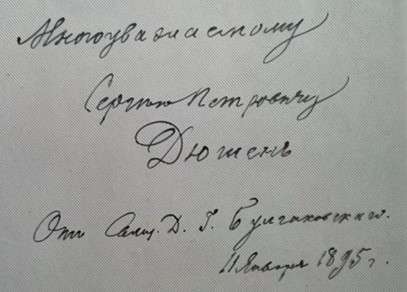 Многоуважаемому
Сергию Петровичу
Дюшенъ
Отъ Свящ. Д. Г. Булгаковскаго.
11 Января 1895 г.